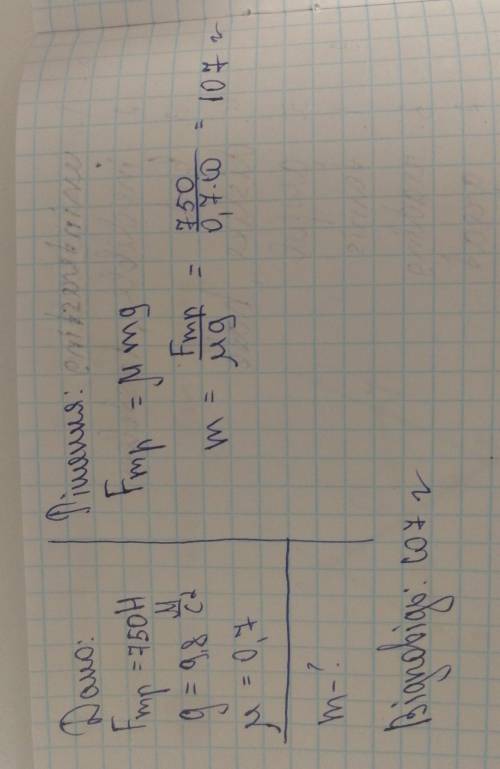 Дано:
Fтр = 750Н
g = 9,8 м/с²
μ = 0,7
m-?
Рішення:
Fтр = μ mg
m = Fтр/μg = 750/0,7·10 = 107 г
Відповідь: 107 г